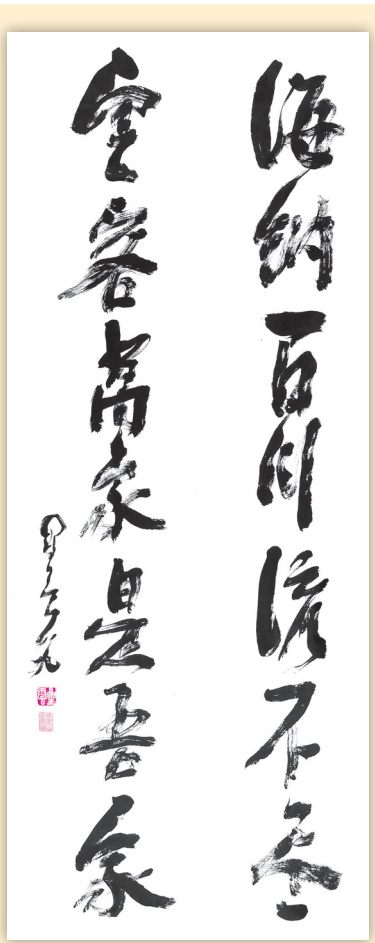 海納百川流不盡
空容萬象是吾家
星雲